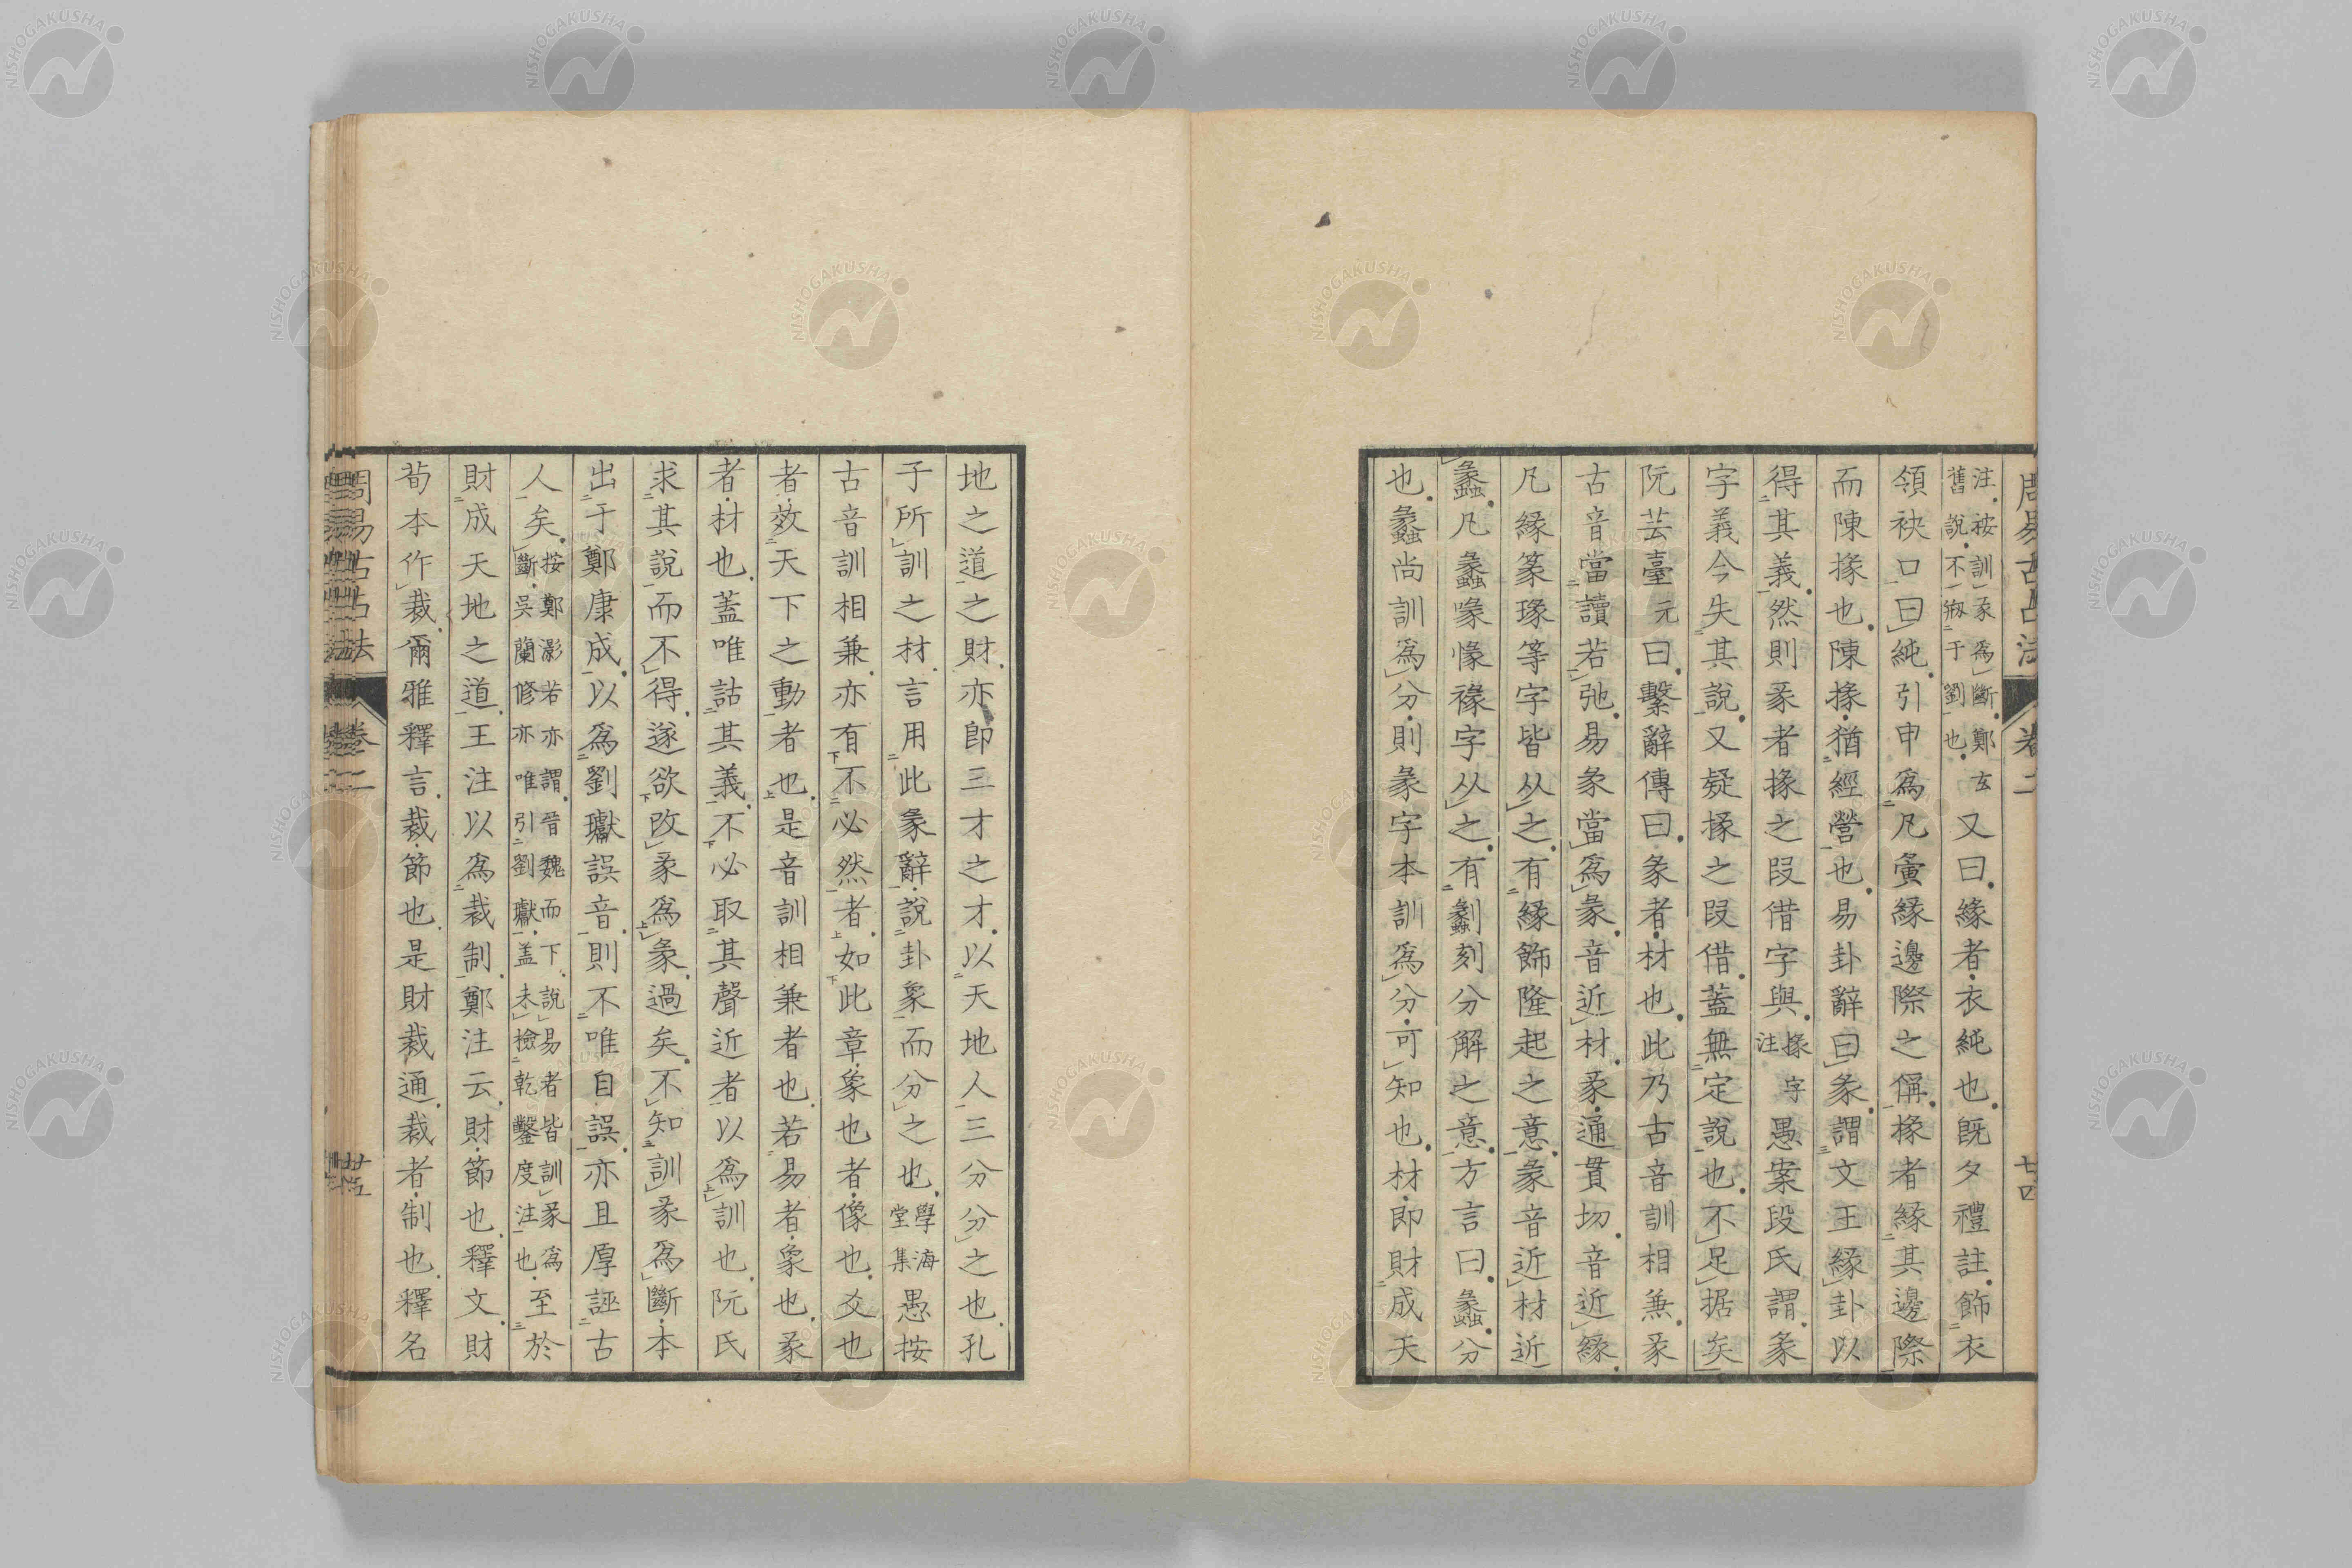 周易古占法 卷二 廿四
注按訓彖爲斷鄭玄舊說不刱于劉也又曰緣者衣純也既夕禮註飾衣
領袂口曰純引申爲凡夤緣邊際之偁掾者緣其邊際
而陳掾也陳掾猶經營也易卦辭曰彖謂文王緣卦以
得其義然則彖者掾之叚借字與掾字注愚案段氏謂彖
字義今失其說又疑掾之叚借蓋無定說也不足据矣
阮芸臺元曰繫辭傳曰彖者材也此乃古音訓相兼彖
古音當讀若弛易彖當爲彖音近材彖通貫切音近緣
凡緣篆瑑等字皆从之有緣飾隆起之意彖音近材近
蠡凡蠡喙㥟禒字从之有劙刻分解之意方言曰蠡分
也蠡尚訓爲分則彖字本訓爲分可知也材即財成天
地之道之財亦即三才之才以天地人三分分之也孔
子所訓之材言用此彖辭說卦象而分之也學海堂集愚按
古音訓相兼亦有不必然者如此章象也者像也爻也
者效天下之動者也是音訓相兼者也若易者象也彖
者材也蓋唯詁其義不必取其聲近者以爲訓也阮氏
求其說而不得遂欲改彖爲彖過矣不知訓彖爲斷本
出于鄭康成以爲劉瓛誤音則不唯自誤亦且厚誣古
人矣按鄭瀏若亦謂晉魏而下說易者皆訓彖爲斷吳蘭修亦唯引劉瓛蓋未檢乾鑿度注也至於
財成天地之道王注以爲裁制鄭注云財節也釋文財
荀本作裁爾雅釋言裁節也是財裁通裁者制也釋名
周易古占法 卷二 廿五